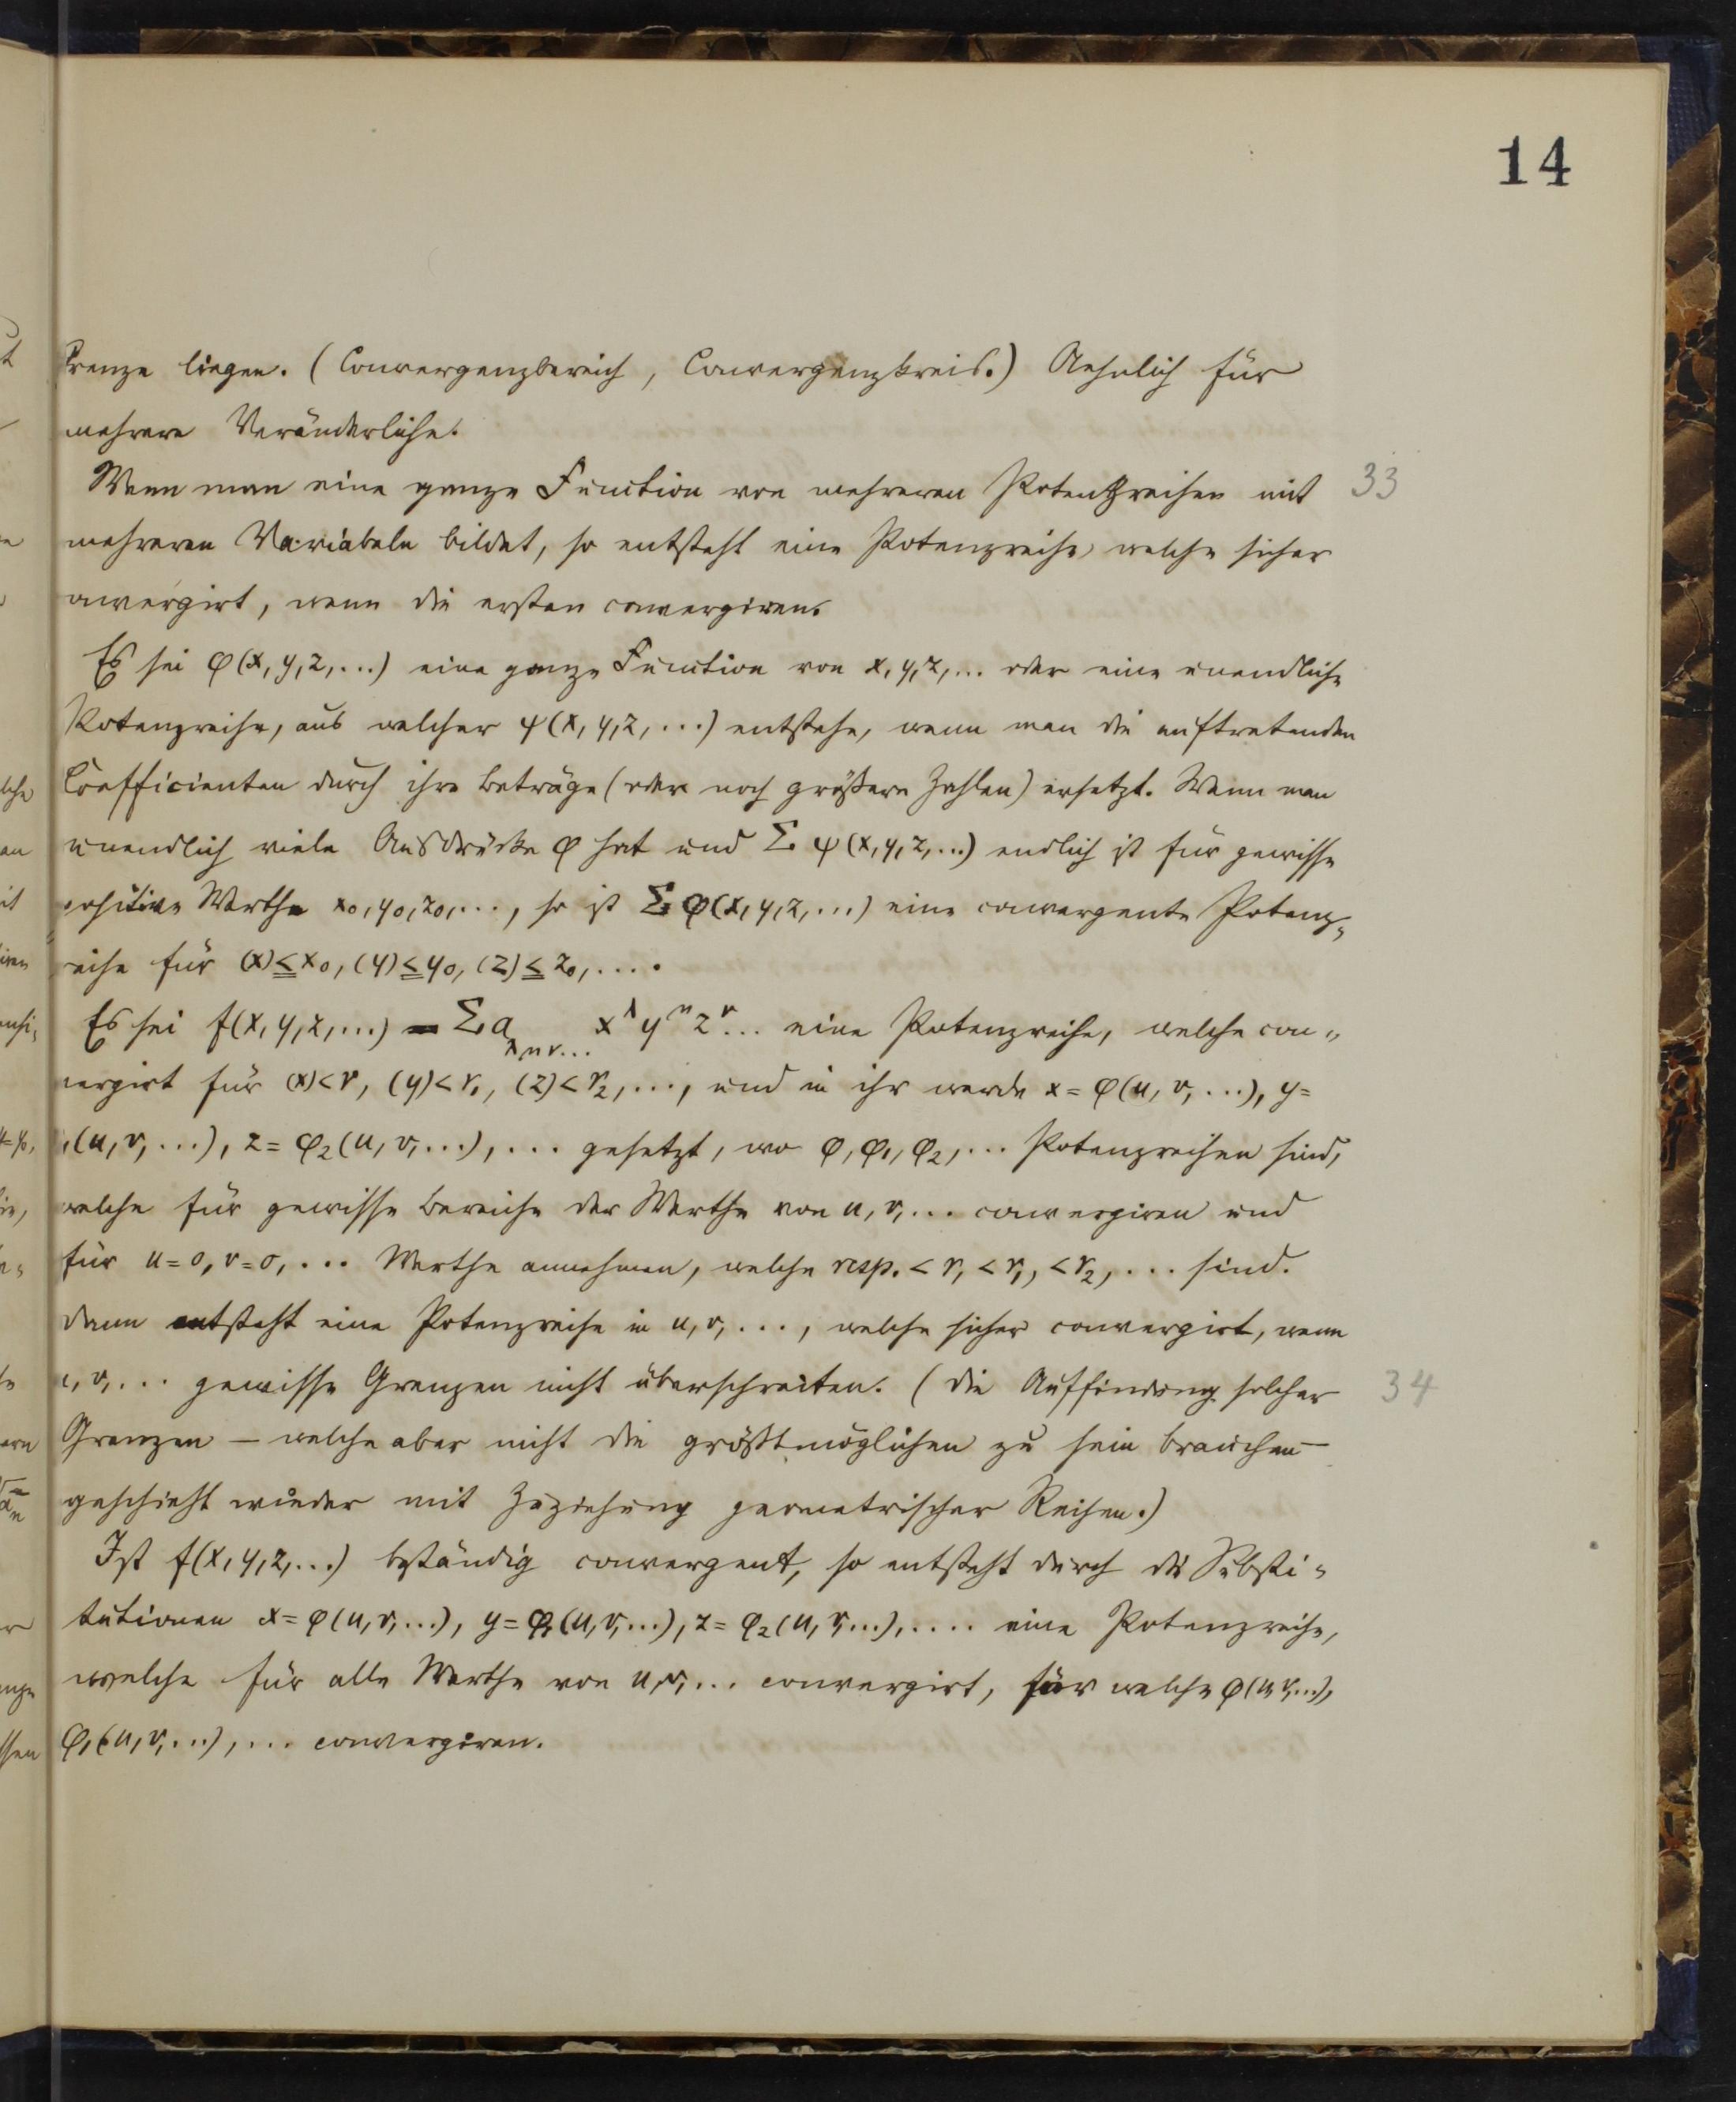 14
Grenze liegen. (Convergenzbereich, Convergenzkreis.) Aehnlich für
mehrere Veränderliche.
Wenn man eine ganze Function von mehreren Potenzreihen mit 33
mehreren Variabeln bildet, so entsteht eine Potenzreihe, welche sicher
convergirt, wenn die ersten convergiren.
Es sei φ(x, y, z, ...) eine ganze Function von x, y, z, ... oder eine unendliche
Potenzreihe, aus welcher ψ(x, y, z, ...) entstehe, wenn man die auftretenden
Coefficienten durch ihre Beträge (oder noch größere Zahlen) ersetzt. Wenn man
unendlich viele Ausdrücke φ hat und Σ ψ(x, y, z, ...) endlich ist für gewisse
positive Werthe x₀, y₀, z₀, ..., so ist Σ φ(x, y, z, ...) eine convergente Potenz-
reihe für (x) ≤ x₀, (y) ≤ y₀, (z) ≤ z₀, ....
Es sei f(x, y, z, ...) = Σ a_{λμν...} x^λ y^μ z^ν ... eine Potenzreihe, welche con-
vergirt für (x) < r, (y) < r₁, (z) < r₂, ..., und in ihr werde x = φ(u, v, ...), y =
φ₁(u, v, ...), z = φ₂(u, v, ...), ... gesetzt, wo φ, φ₁, φ₂, ... Potenzreihen sind,
welche für gewisse Bereiche der Werthe von u, v, ... convergiren und
für u = 0, v = 0, ... Werthe annehmen, welche resp. < r, < r₁, < r₂, ... sind.
Dann entsteht eine Potenzreihe in u, v, ..., welche sicher convergirt, wenn
u, v, ... gewisse Grenzen nicht überschreiten. (Die Auffindung solcher 34
Grenzen – welche aber nicht die größtmöglichen zu sein brauchen –
geschieht wieder mit Zuziehung geometrischer Reihen.)
Ist f(x, y, z, ...) beständig convergent, so entsteht durch die Substi-
tutionen x = φ(u, v, ...), y = φ₁(u, v, ...), z = φ₂(u, v, ...), .... eine Potenzreihe,
welche für alle Werthe von u, v, ... convergirt, für welche φ(u, v, ...),
φ₁(u, v, ...), ... convergiren.